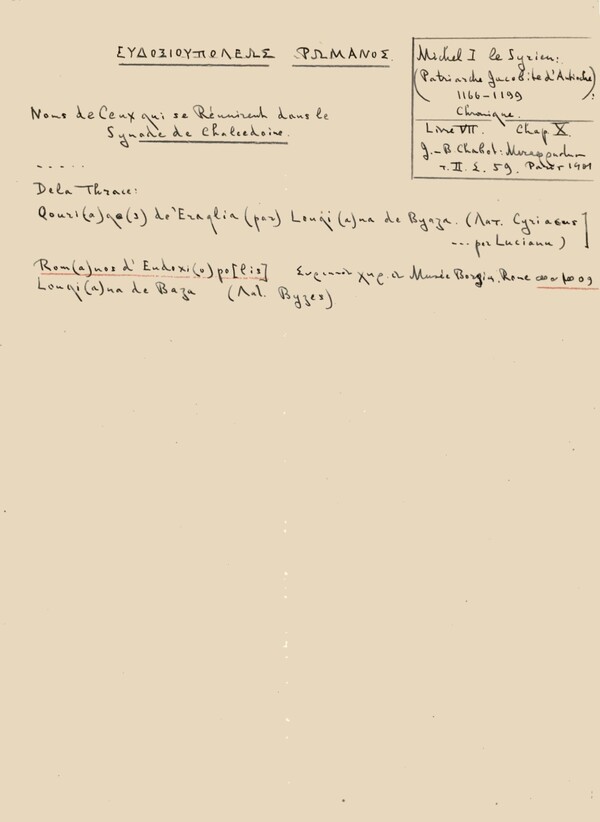 ΕΥΔΟΞΙΟΥΠΟΛΕΩΣ ΡΩΜΑΝΟΣ.
Michel I le Syrien:
(Patriarche Jacobite d'Antioche):
1166-1199
Chronique.
Livre VII. Chap X.
J.-B. Chabot:
τ. II. Σ. 59. Paris 1901
Noms de Ceux qui se Réunirent dans le
Synode de Chalcedoine.
- - - - -
De la Thrace:
Qouri(a)qo(s) de'Eraglia (par) Louqi(a)na de Byaza. (Λατ. Cyriacus
... per Lucianu)]
Rom(a)nos d'Eudoxi(o)po[lis] Συριακόν χειρ. Musée Borgia. Rome
Louqi(a)na de Baza (Λατ. Byzes)